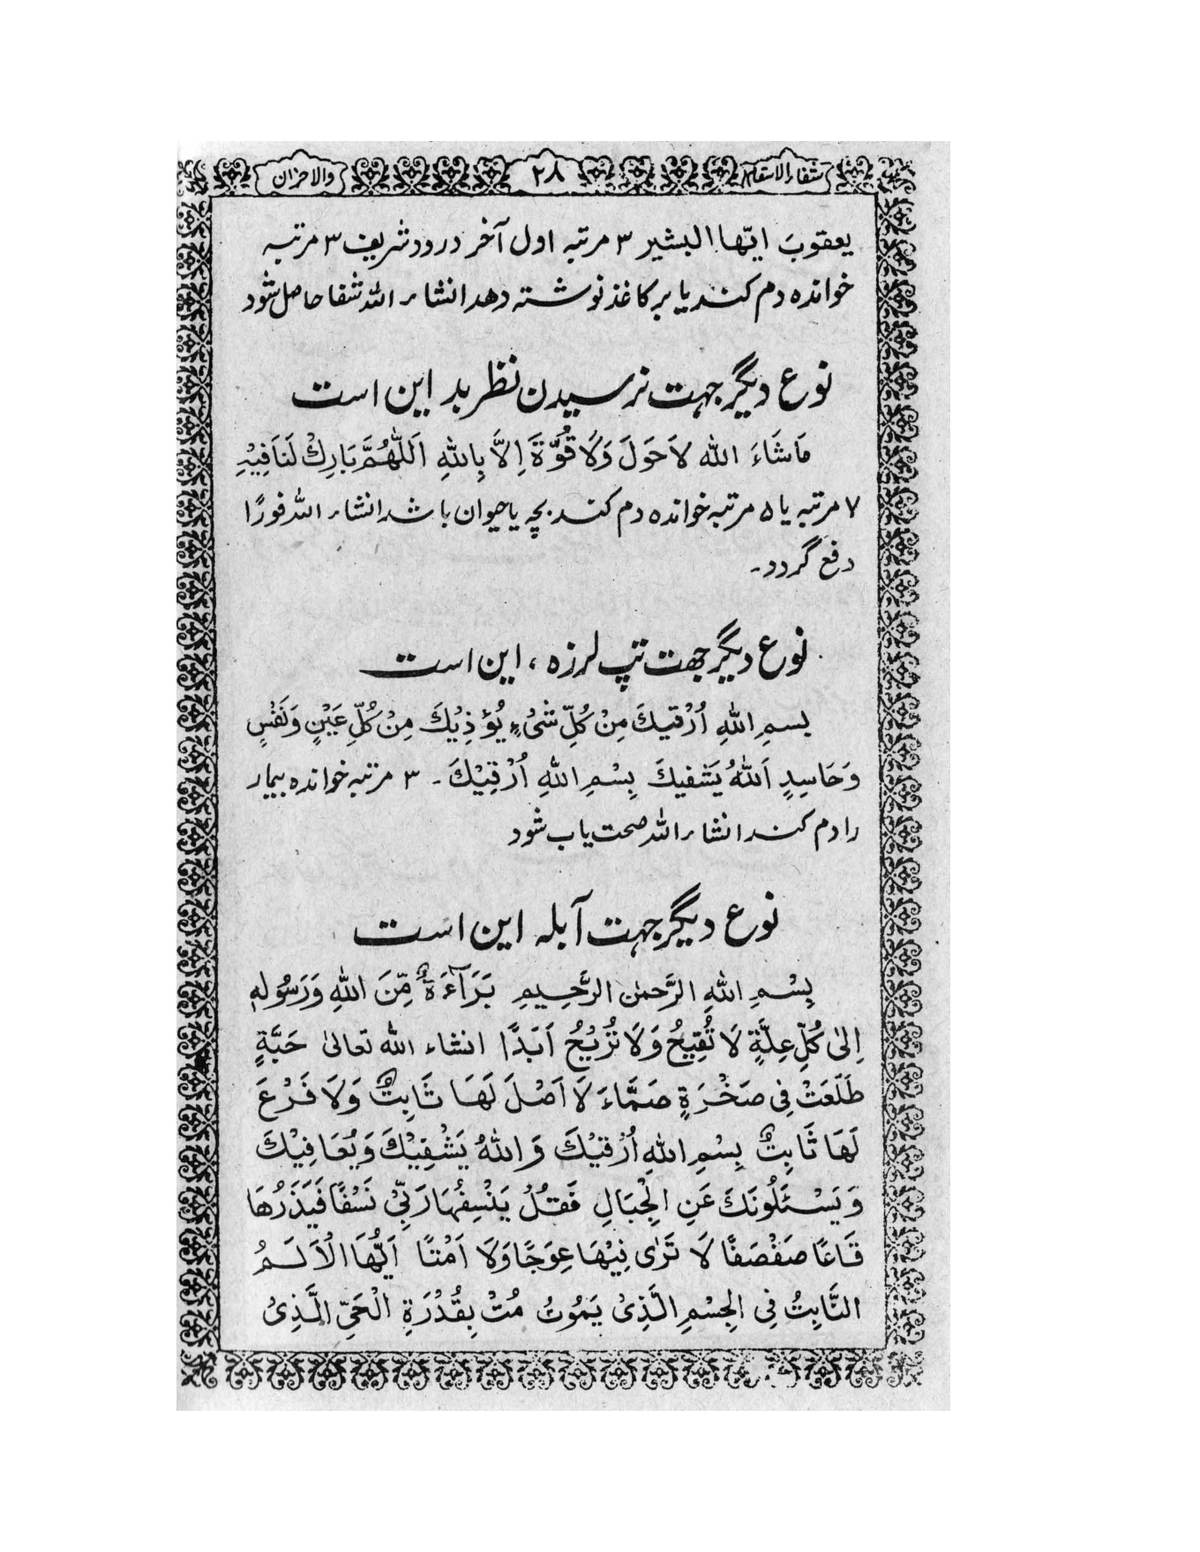 شفاء الاسقام ۲۸ والاحزان
یعقوبَ ایّها البشیر ۳ مرتبہ اول آخر درود شریف ۳ مرتبہ
خواندہ دم کند یا بر کاغذ نوشتہ دھد انشاء اللہ شفا حاصل شود
نوع دیگر جہت نرسیدن نظر بد این است
مَاشَاءَ اللہ لاَحَولَ وَلَا قُوَّةَ اِلاَّ بِاللهِ اَللّٰهُمَّ بَارِكْ لَنَا فِيْہِ
۷ مرتبہ یا ۵ مرتبہ خواندہ دم کند بچہ یا حیوان باشد انشاء اللہ فورًا
دفع گردد۔
نوع دیگر جھت تپ لرزہ ، این است
بسمِ اللهِ اُرْقيكَ مِنْ كُلِّ شَیْءٍ يُؤذِيْكَ مِنْ كُلِّ عَيْنٍ وَنَفْسٍ
وَحَاسِدٍ اَللهُ يَشفيكَ بِسْمِ اللهِ اُرْقِيْكَ ۔ ۳ مرتبہ خواندہ بیمار
را دم کند انشاء اللہ صحت یاب شود
نوع دیگر جہت آبلہ این است
بِسْمِ اللهِ الرَّحمٰن الرَّحِيمِ بَرَآءَةٌ مِّنَ اللهِ وَرَسُولِهٖ
اِلىٰ كُلِّ عِلَّةٍ لَا تُقِيْحُ وَلَا تُرِيْحُ اَبَدًا انشاء الله تعالىٰ حَبَّةٍ
طَلَعَتْ فِي صَخْرَةٍ صَمَّاءَ لَا اَصْلَ لَهَا ثَابِتٌ وَلَا فَرْعَ
لَهَا ثَابِتٌ بِسْمِ اللهِ اُرْقيْكَ وَاللهُ يَشْفِيْكَ وَيُعَافِيْكَ
وَيَسْئَلُونَكَ عَنِ الْجِبَالِ فَقُلْ يَنْسِفُهَا رَبِّيْ نَسْفًا فَيَذَرُهَا
قَاعًا صَفْصَفًا لَا تَرٰى فِيْهَا عِوَجًا وَلَا اَمْتًا اَيُّهَا الْاَلَمُ
الثَّابِتُ فِي الْجِسْمِ الَّذِىْ يَمُوتُ مُتْ بِقُدْرَةِ الْحَيِّ الَّذِىْ